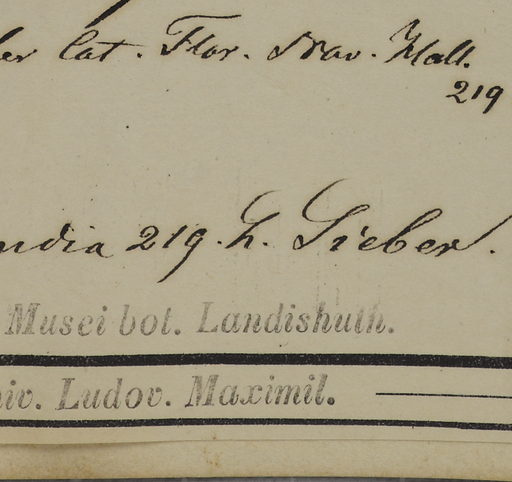 Cat. Flor. Nov. Holl.
219
219. h. Sieber.
Musei bot. Landishuth.
iv. Ludov. Maximil.